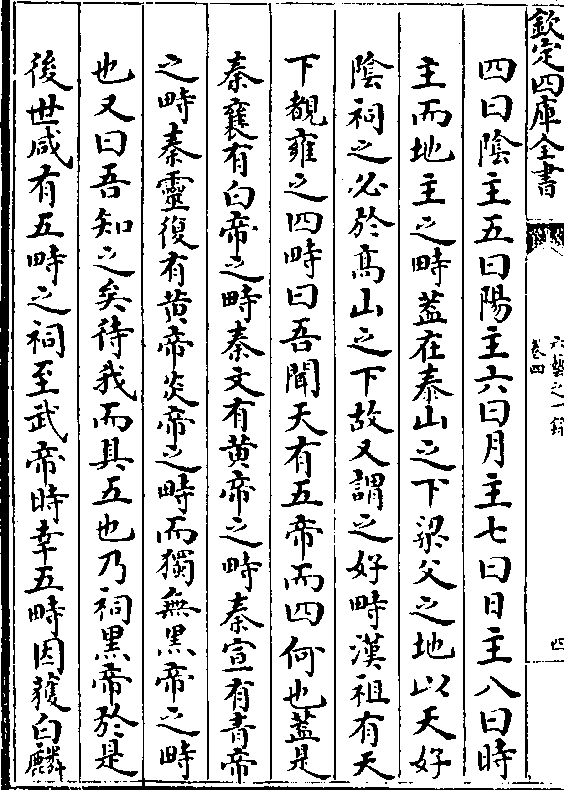 欽定四庫全書
六藝之一錄
卷四
四
四曰陰主五曰陽主六曰月主七曰日主八曰時
主而地主之畤葢在泰山之下梁父之地以天好
陰祠之必於高山之下故又謂之好畤漢祖有天
下覩雍之四畤曰吾聞天有五帝而四何也葢是
秦襄有白帝之畤秦文有黄帝之畤秦宣有青帝
之畤秦靈復有黄帝炎帝之畤而獨無黑帝之畤
也又曰吾知之矣待我而具五也乃祠黑帝於是
後世咸有五畤之祠至武帝時幸五畤因獲白麟